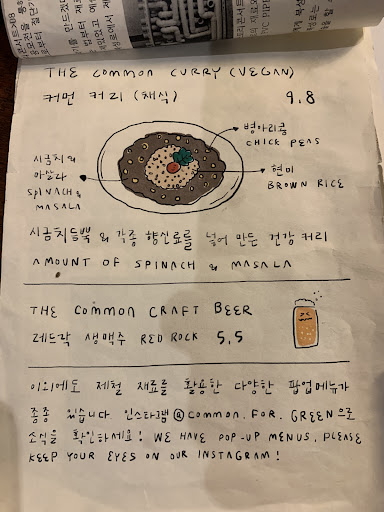 THE COMMON CURRY (VEGAN)
커먼 커리 (채식) 9.8
병아리콩
CHICK PEAS
시금치와
마살라
SPINACH &
MASALA
현미
BROWN RICE
시금치듬뿍 와 각종 향신료를 넣어 만든 건강커리
AMOUNT OF SPINACH & MASALA
THE COMMON CRAFT BEER
레드락 생맥주 RED ROCK 5,5
이외에도 제철 재료를 활용한 다양한 팝업메뉴가
종종 있습니다 인스타그램 @COMMON.FOR.GREEN으로
소식을 확인하세요! WE HAVE POP-UP MENUS. PLEASE
KEEP YOUR EYES ON OUR INSTAGRAM!